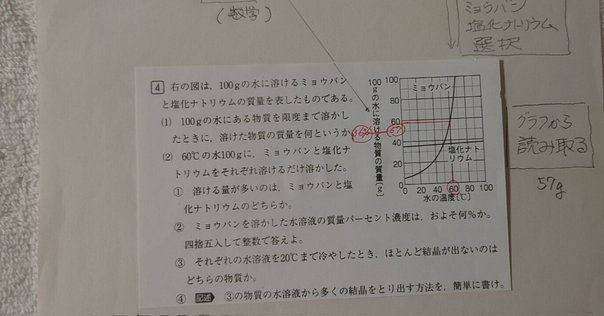 (数学)
ミョウバン
塩化ナトリウム
選択
4 右の図は，100gの水に溶けるミョウバン
と塩化ナトリウムの質量を表したものである。
(1) 100gの水にある物質を限度まで溶かし
たときに，溶けた物質の質量を何というか。
(2) 60℃の水100gに，ミョウバンと塩化ナ
トリウムをそれぞれ溶けるだけ溶かした。
① 溶ける量が多いのは，ミョウバンと塩
化ナトリウムのどちらか。
② ミョウバンを溶かした水溶液の質量パーセント濃度は，およそ何%か。
四捨五入して整数で答えよ。
③ それぞれの水溶液を20℃まで冷やしたとき，ほとんど結晶が出ないのは
どちらの物質か。
④ 記述 ③の物質の水溶液から多くの結晶をとり出す方法を，簡単に書け。
100gの水に溶ける物質の質量(g)
100
80
60
40
20
0
ミョウバン
塩化ナト
リウム
0 20 40 60 80 100
水の温度[℃]
57
グラフから
読み取る
57g